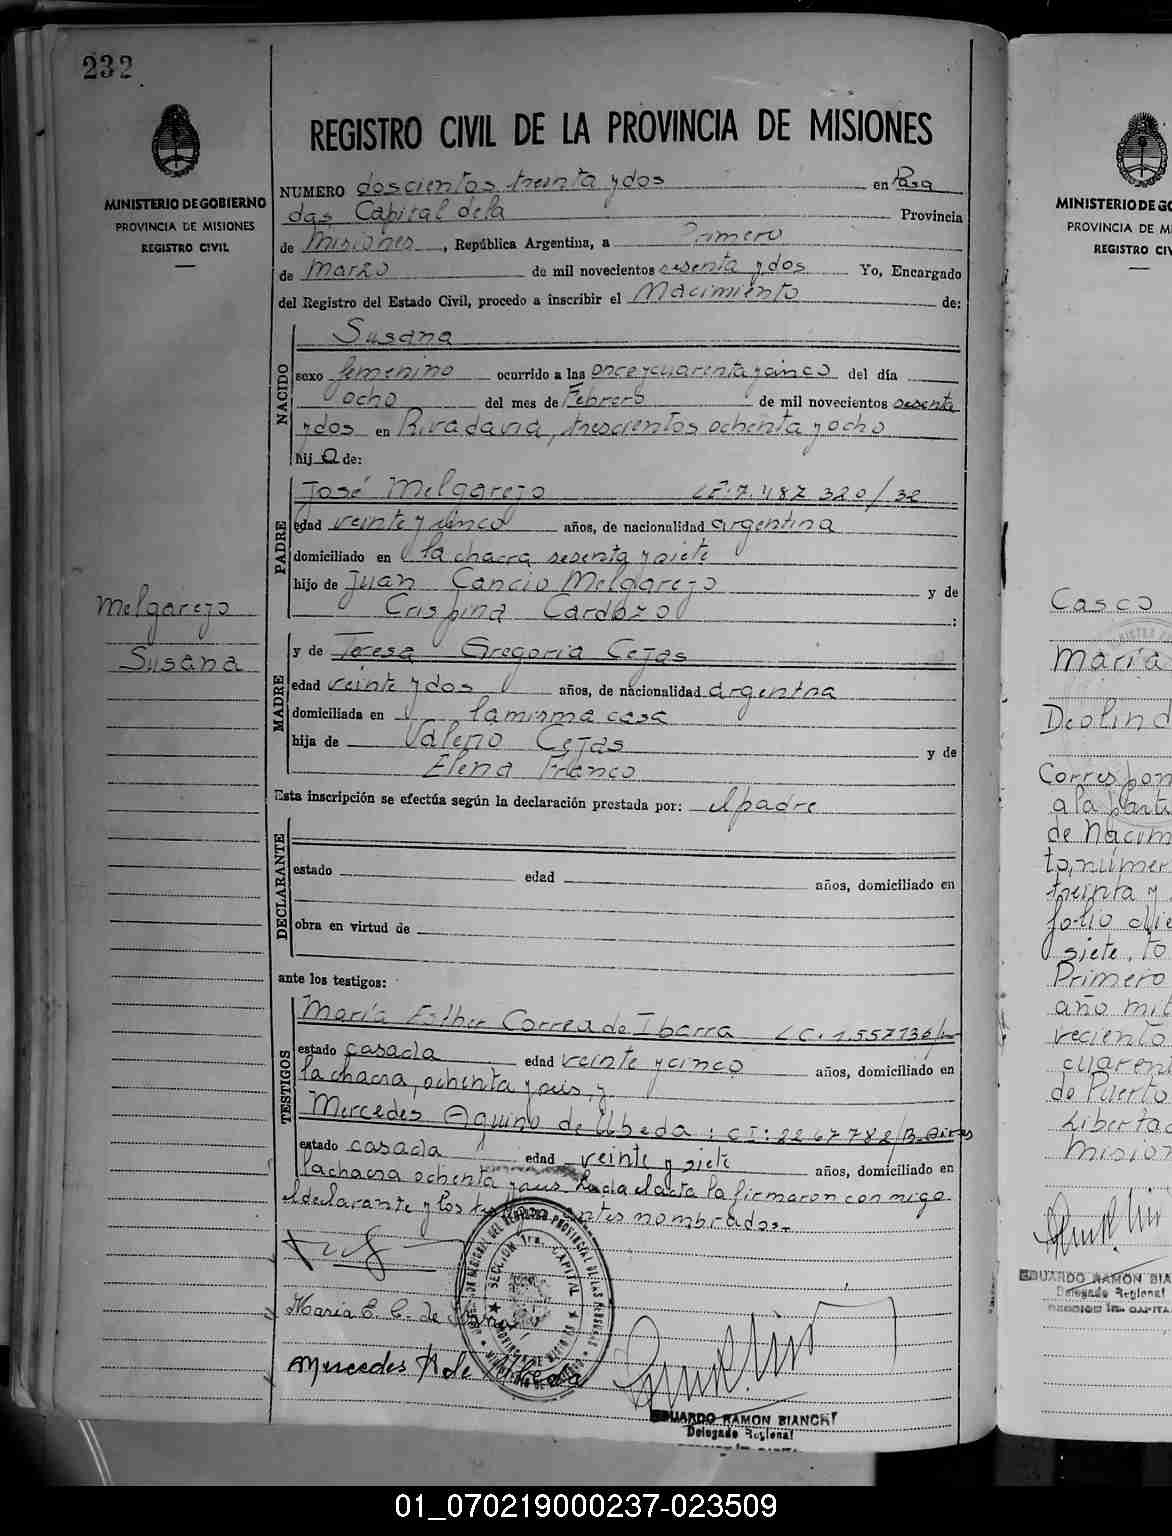 232
MINISTERIO DE GOBIERNO
PROVINCIA DE MISIONES
REGISTRO CIVIL
Melgarejo
Susana
REGISTRO CIVIL DE LA PROVINCIA DE MISIONES
NUMERO doscientos treinta y dos en Posa
das Capital dela Provincia
de Misiones, República Argentina, a Primero
de Marzo de mil novecientos sesenta y dos Yo, Encargado
del Registro del Estado Civil, procedo a inscribir el Nacimiento de:
NACIDO
Susana
sexo femenino ocurrido a las once y cuarenta y cinco del día
ocho del mes de Febrero de mil novecientos sesenta
y dos en Rivadavia, trescientos ochenta y ocho
hija de:
PADRE
José Melgarejo 7.487.320/32
edad veinte y cinco años, de nacionalidad argentina
domiciliado en la chacra sesenta y siete
hijo de Juan Cancio Melgarejo y de
Crispina Cardozo :
MADRE
y de Teresa Gregoria Cejas
edad veinte y dos años, de nacionalidad argentina
domiciliada en la misma casa
hija de Valerio Cejas y de
Elena Franco
Esta inscripción se efectúa según la declaración prestada por: el padre
DECLARANTE
estado edad años, domiciliado en
obra en virtud de
ante los testigos:
TESTIGOS
María Esther Correa de Ibarra L C. 1.557.736/
estado casada edad veinte y cinco años, domiciliado en
la chacra, ochenta y seis, y
Mercedes Aquino de Ubeda: C I: 2267782/B. Aires
estado casada edad veinte y siete años, domiciliado en
la chacra ochenta y seis Leida el acta la firmaron conmigo
el declarante y los testigos antes nombrados.-
Maria E. C. de Ibarra
Mercedes A de Ubeda
SECCION 1ra. CAPITAL
EDUARDO RAMON BIANCHI
Delegado Regional
MINISTERIO DE GO
PROVINCIA DE MI
REGISTRO CIV
Casco
María
Deolind
Correspon
a la parti
de Nacim
to, númer
treinta y
folio die
siete, to
Primero
año mil
veciento
cuaren
de Puerto
Libertad
Mision
EDUARDO RAMON BIA
Delegado Regional
SECCION 1ra. CAPITA
01_070219000237-023509